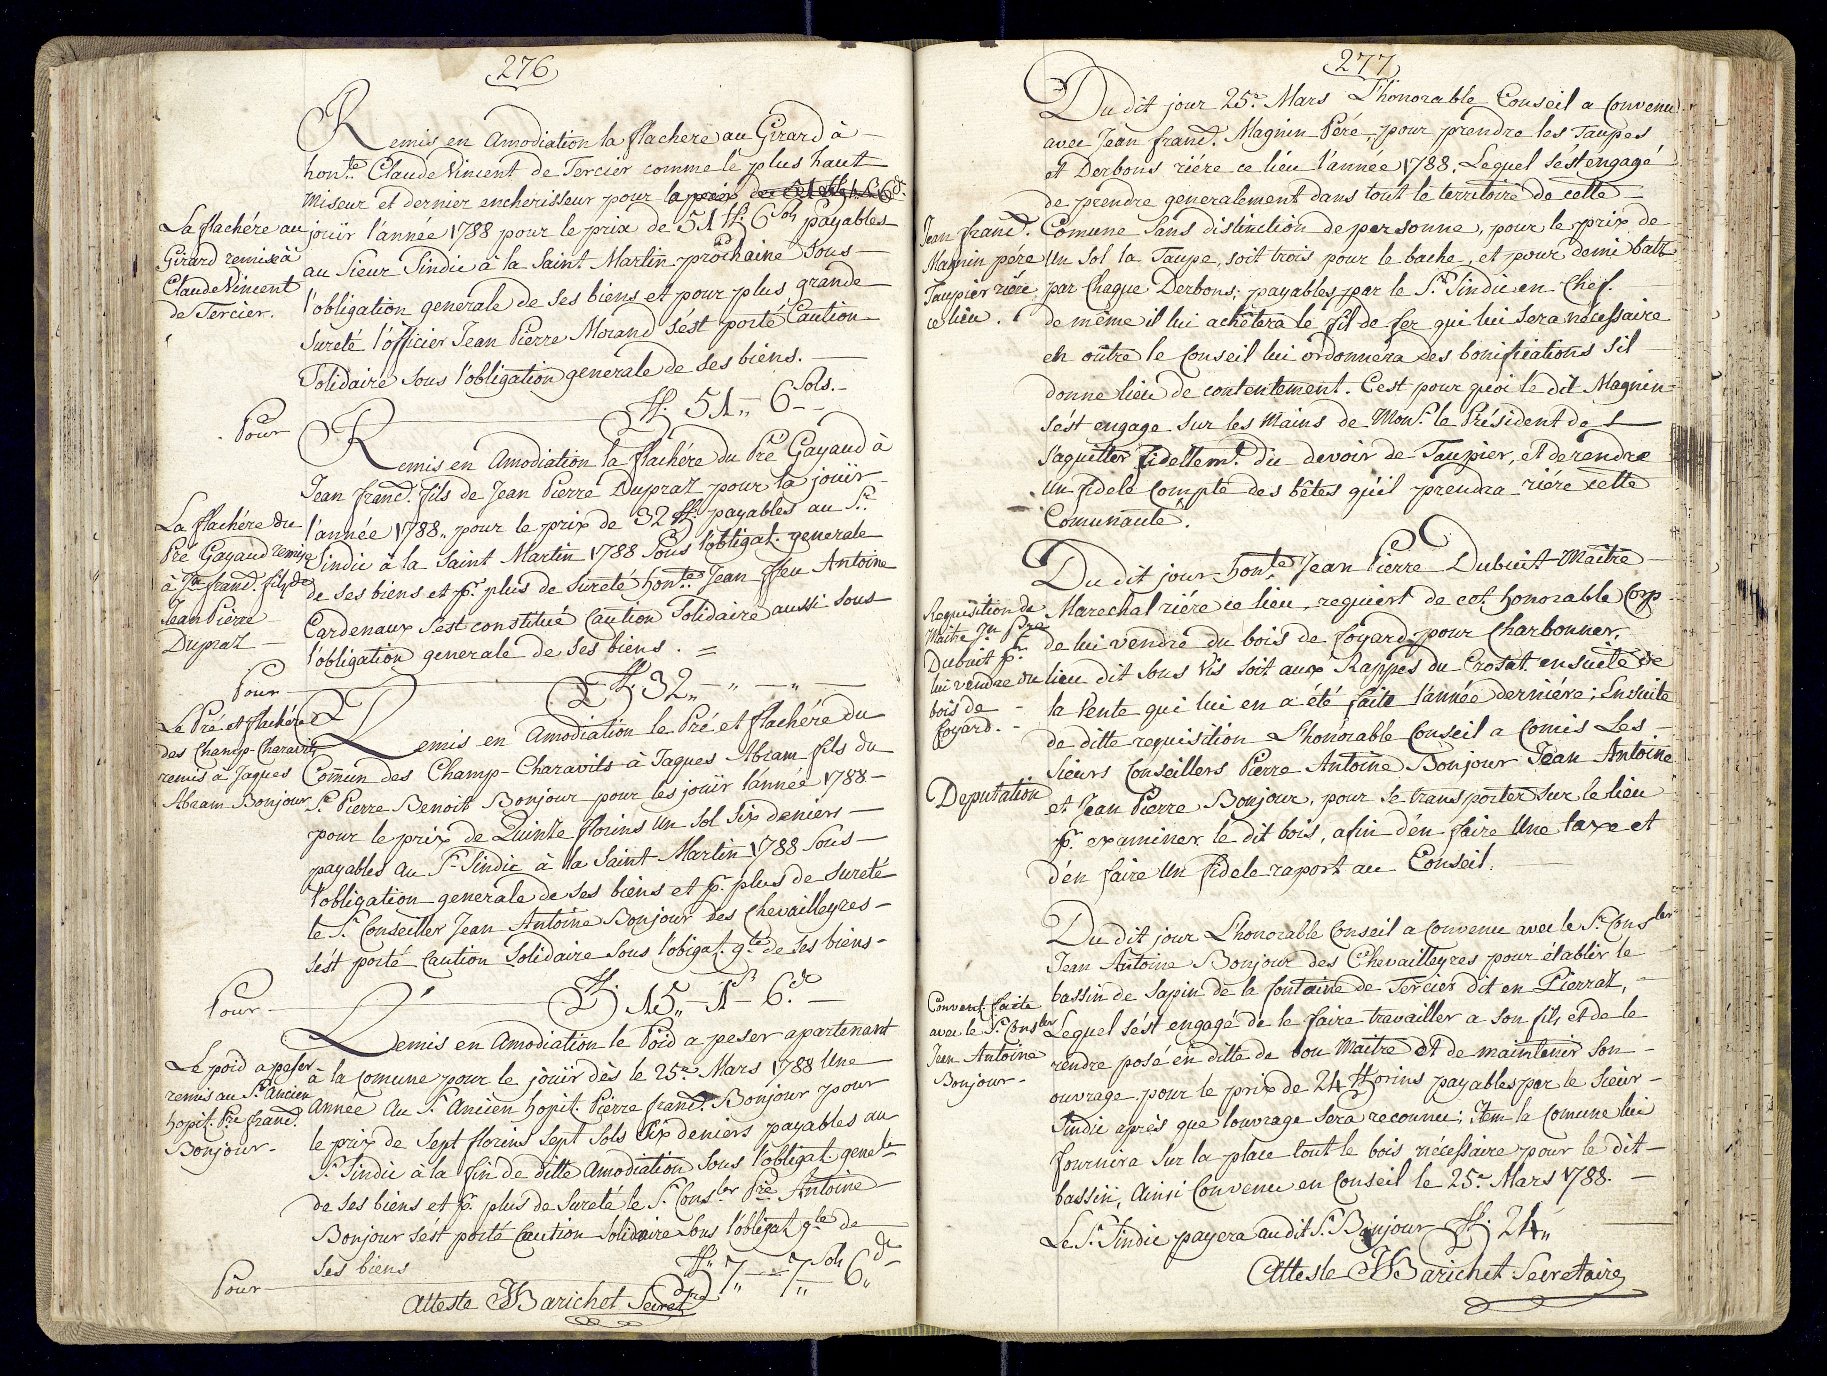 276
Remis en amodiation la flachere au Girard à
hon.te Claude Vincent de Tercier comme le plus haut
miseur et dernier encherisseur pour
La flachére au
Girard remise à
Claude Vincent
de Tercier.
joüir l'année 1788 pour le prix de 51 ff. 6 sols payables
au Sieur Sindic à la Saint Martin prochaine sous
l'obligation generale de ses biens et pour plus grande
sureté l'officier Jean Pierre Morand s'ést porté Caution
Solidaire sous l'obligation generale de ses biens.
Pour ff. 51 „ 6 Sols.
Remis en amodiation la flachére du Pré Gayaud à
Jean franc.s fils de Jean Pierre Dupraz pour la joüir
La flachére du
Pré Gayaud remise
à Jn franc.s fils de
Jean Pierre
Dupraz
l'année 1788 „ pour le prix de 32 ff. payables au S.r
Sindic à la Saint Martin 1788 sous l'obligat. generale
de ses biens et p.r plus de sureté hon.te Jean ffeu Antoine
Cardenaux s'est constitué Caution Solidaire aussi sous
l'obligation generale de ses biens. =
Pour ff. 32 „ — „ — „ —
Remis en amodiation le Pré et flachére du
Le Pré et flachére
des Champ-Charavits
remis à Jaques
Abram Bonjour
Comun des Champ-Charavits à Jaques Abram fils du
S.r Pierre Benoit Bonjour pour les joüir l'année 1788
pour le prix de Quinze florins un sol six deniers
payables au S.r Sindic à la Saint Martin 1788 sous
l'obligation generale de ses biens et p.r plus de sureté
le S.r Conseiller Jean Antoine Bonjour des Chevailleyres
s'ést porté Caution Solidaire sous l'obigat. g.le de ses biens
Pour ff. 15 „ 1 s 6 d.
Remis en amodiation le Poid a peser apartenant
Le poid a peser
remis au S.r Ancien
hopit. P.re franc.s
Bonjour
à la Comune pour le joüir dès le 25.e Mars 1788 Une
Année au S.r Ancien hopit. Pierre franc.s Bonjour pour
le prix de sept florins sept sols six deniers payables au
S.r Sindic à la fin de ditte amodiation sous l'obligat. gene.le
de ses biens et p.r plus de sureté le S.r Cons.ler P.re Antoine
Bonjour s'ést porté Caution Solidaire sous l'obligat. g.le de
ses biens
Pour ff. 7 „ 7 Sols 6 d.
Atteste Barichet Secret.re
277
Du dit jour 25.e Mars L'honorable Conseil a Convenu
avec Jean franc.s Magnin Péré, pour prendre les Taupes
et Derbons riére ce lieu l'année 1788. Lequel s'ést engagé
de prendre generalement dans tout le territoire de cette
Jean franc.s
Magnin pére
Taupier riére
ce lieu.
Comune sans distinction de personne, pour le prix de
Un sol la Taupe, soit trois pour le bache, et pour demi batz
par Chaque Derbons; payables par le S.r Sindic en Chef.
de même il lui achêtera le fil de fer qui lui sera nécessaire
en oûtre le Conseil lui ordonnera des bonifications s'il
donne lieu de contentement. C'est pour quoi le dit Magnin
s'ést engage sur les Mains de Mons.r le Président de
s'aquitter fidellem.t du devoir de Taupier, et de rendre
Un fidele Compte des bêtes qu'il prendra riére cette
Comunauté.
Du dit jour hon.te Jean Pierre Dubuit Maître
Requisition de
Maitre Jn P.re
Dubuit p.r
lui vendre du
bois de
foyard.
Marechal riére ce lieu, requiert de cet honorable Corp
de lui vendre du bois de foyard pour Charbonner,
lieu dit sous Vis soit aux Rappes du Crosat ensuite de
la Vente qui lui en a été faite l'année derniére; Ensuite
de ditte requisition L'honorable Conseil a Comis Les
Sieurs Conseillers Pierre Antoine Bonjour Jean Antoine
Deputation
et Jean Pierre Bonjour, pour se transporter sur le lieu
p.r examiner le dit bois, afin d'én faire Une taxe et
d'én faire Un fidele raport au Conseil.
Du dit jour L'honorable Conseil a Convenu avec le S.r Cons.ler
Jean Antoine Bonjour des Chevailleyres pour établir le
bassin de sapin de la fontaine de Tercier dit en Pierraz,
Convent. faite
avec le S.r Cons.ler
Jean Antoine
Bonjour
Lequel s'ést engagé de le faire travailler a son fils et de le
rendre posé en ditte de bon Maitre et de maintenir son
ouvrage pour le prix de 24 fforins payables par le Sieur
Sindic après que l'ouvrage sera reconnu; Item la Comune lui
fournira sur la place tout le bois nécessaire pour le dit
bassin; Ainsi Convenu en Conseil le 25.e Mars 1788.
Le S.r Sindic payera au dit S.r Bonjour ff. 24 „
Atteste Barichet Secretaire